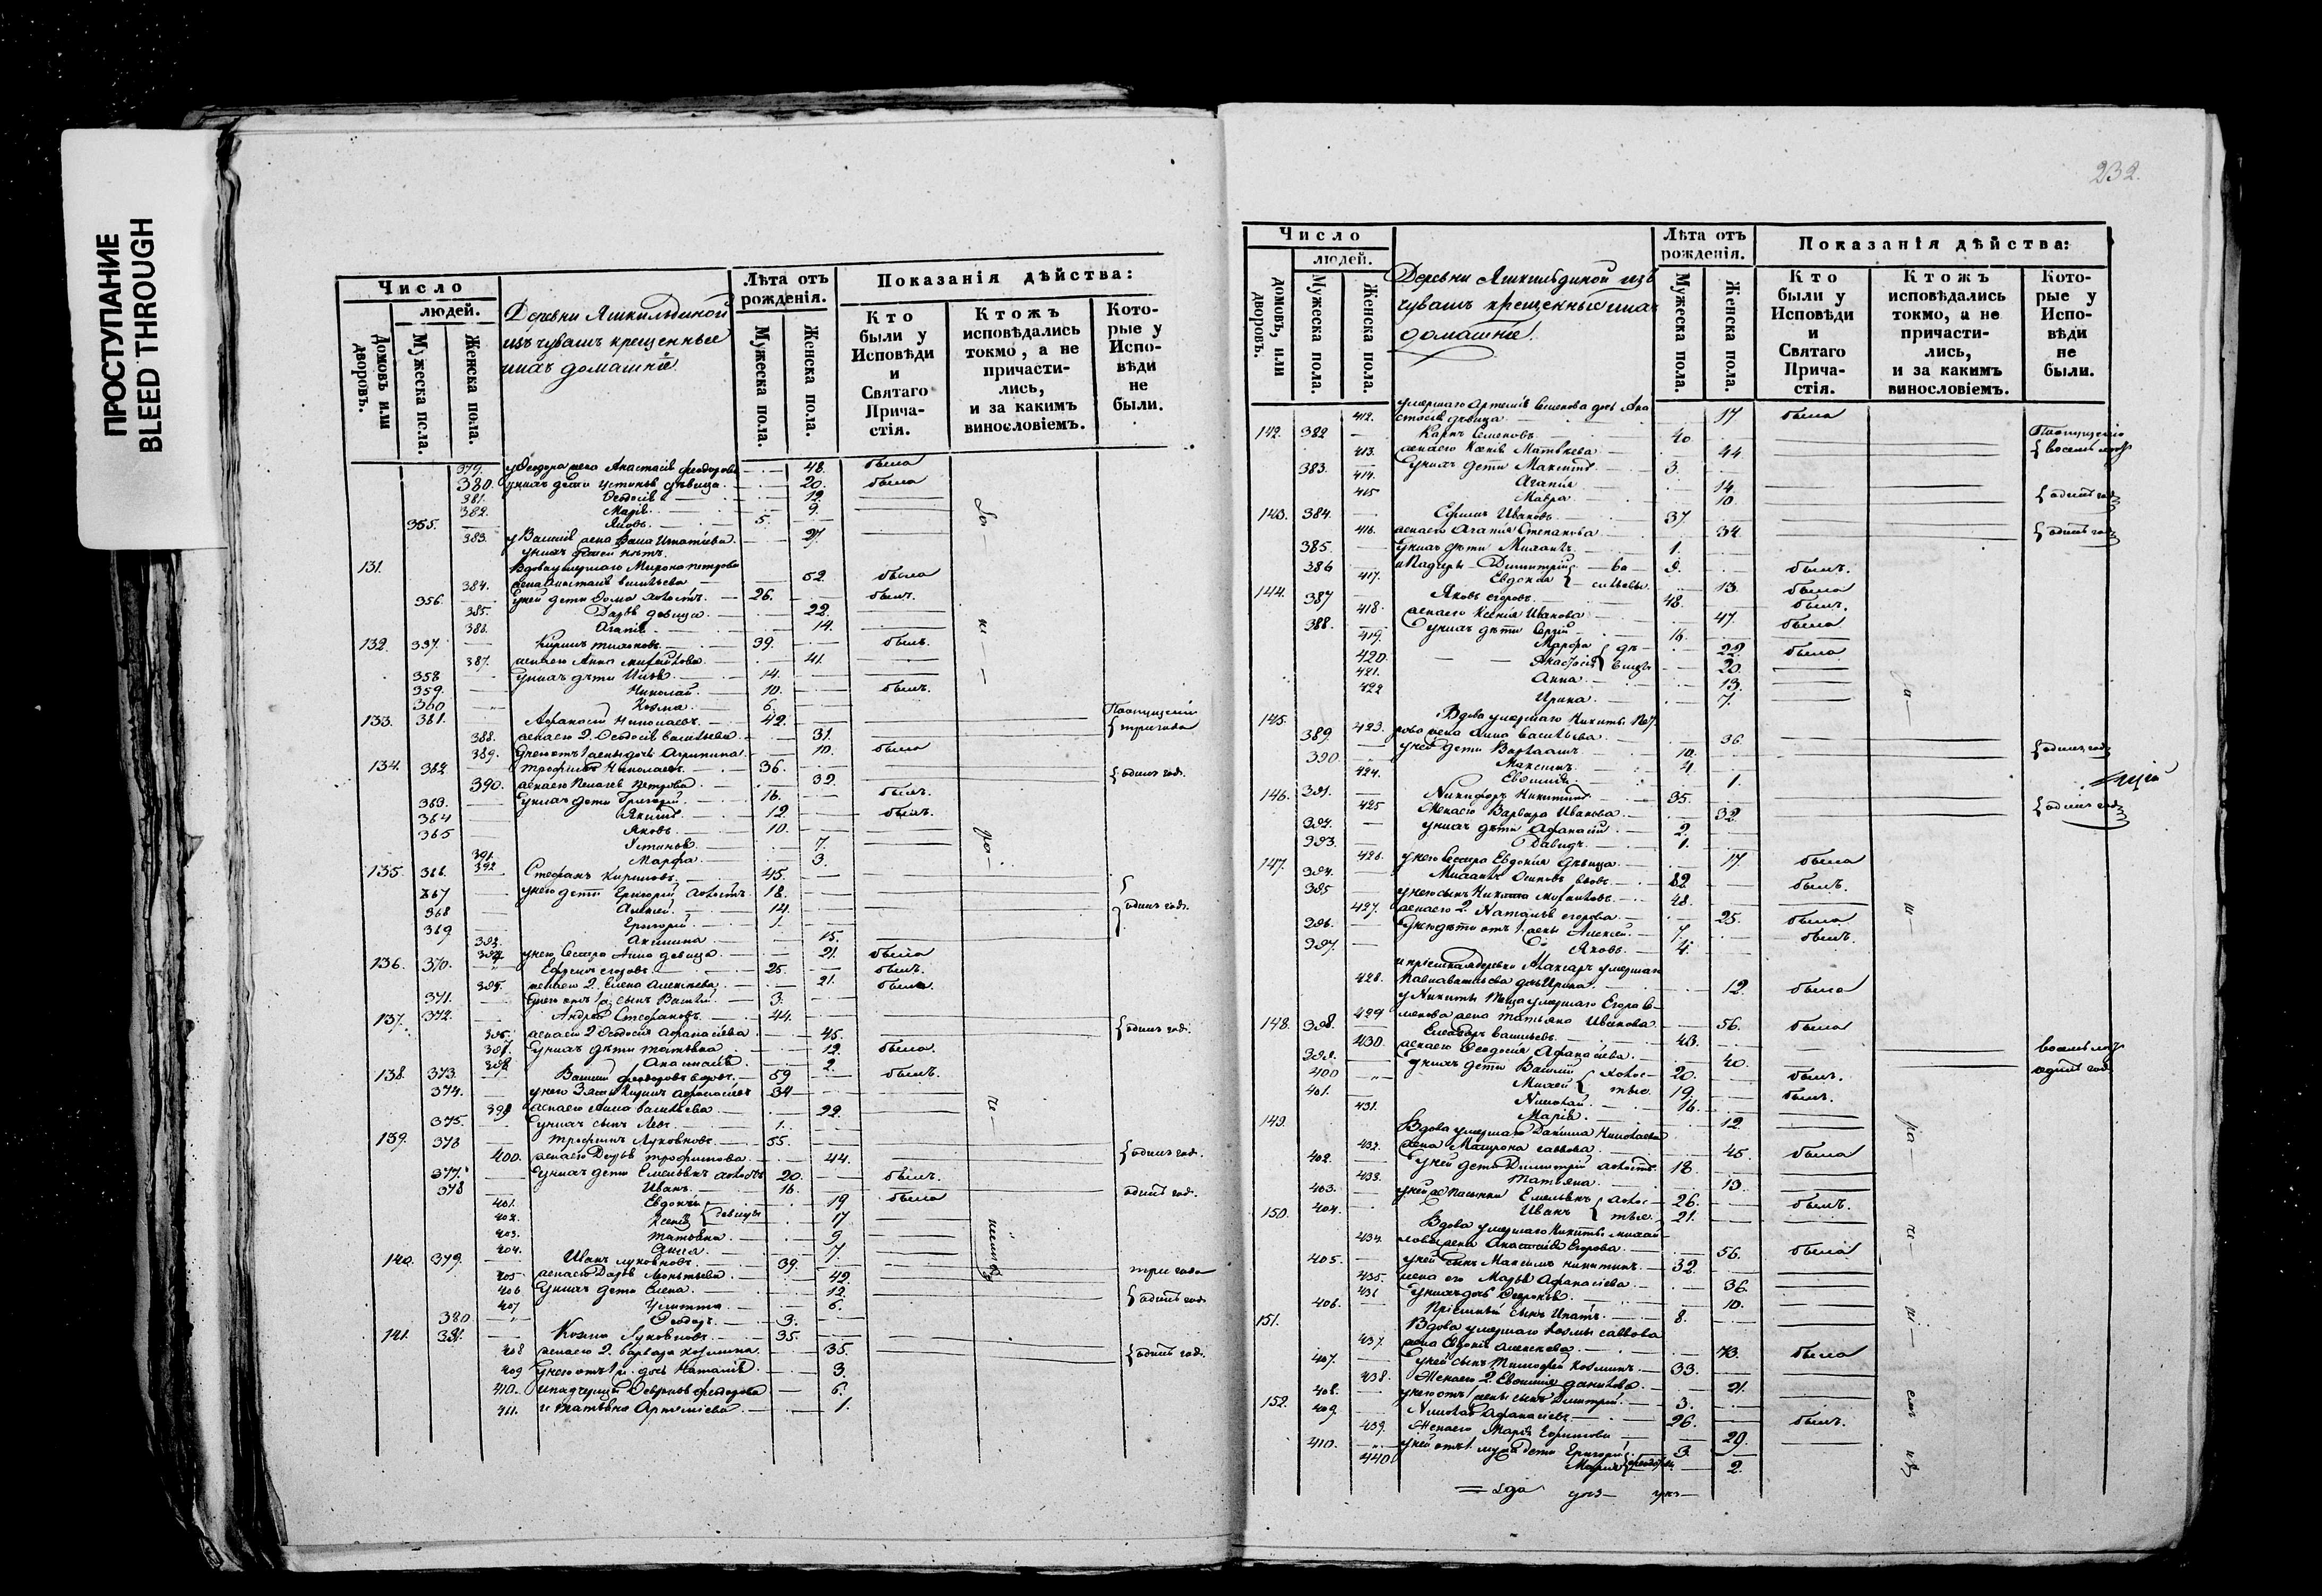 ПРОСТУПАНИЕ
BLEED THROUGH
Число
людей.
Домовъ или дворовъ.
Мужеска пола.
Женска пола.
Деревни Яшкильдиной
изъ чувашъ крещенные
и ихъ домашніе
Лѣта отъ рожденія.
Мужеска пола.
Женска пола.
Показанія дѣйства:
Кто были у Исповѣди и Святаго Причастія.
Ктожъ исповѣдались токмо, а не причастились, и за какимъ винословіемъ.
Которые у Исповѣди не были.
379. у Феодора жена Анастасія Феодорова 48. была
380. у нихъ дети Устинья девица 20. была
381. Феодосія 12.
382. Марія 9.
355. Яковъ 5.
383. у Василія жена Игнатіева 27.
у нихъ детей нетъ.
131. Вдова умершаго Мирона Петрова
384. жена Анастасія Васильева 52. была
356. у ней дети Фома холостъ 26. былъ.
385. Дарья девица 22.
386. Агапія 14.
132. 357. Тихоновъ 39. былъ.
387. жена его Анна Михайлова 41.
358 у нихъ дѣти Илья 14.
359. Николай 10. былъ.
360 Козма 6.
133. 361. Афанасій Николаевъ 42. По опущенію
388. жена его 2. Феодосія Васильева 31. три года
389. у него отъ 1 жены дочь Агрипина 10. была
134. 362 Трофимъ Николаевъ 36.
390. жена его Пелагея Петрова 32. одинъ годъ.
363. у нихъ дети Григорій 16. былъ.
364 Якимъ 12. былъ.
365 Яковъ 10.
391. Устинья 7.
392 Марфа 3.
135. 366. Стефанъ Кириловъ 45.
367 у него дети Григорій холостъ 18.
368 Алексей 14. одинъ годъ.
369 Григорій 1.
393. Акилина 15.
394 у него сестра Анна девица 21. была
136. 370. Ефремъ Егоровъ 25. былъ.
395. жена его 2. Елена Алексеева 21. была.
371. у него отъ 1й сынъ Василій 3.
137. 372. Андрей Стефановъ 44.
396. жена его 2 Феодосія Афанасіева 45. одинъ годъ.
397. у нихъ дѣти Татьяна 12. была.
398 Анастасія 2.
138. 373. Василій Феодоровъ вдовъ 59 былъ.
374. у него зять Афанасіевъ 34
399 жена его Анна Васильева 22.
375. у нихъ сынъ Левъ 1.
139. 376 Трофимъ Луковновъ 55.
400. жена его Дарья Трофимова 44. одинъ годъ.
377. у нихъ дети Емельянъ холостъ 20. былъ.
378 Иванъ 16. одинъ годъ.
401. Евдокія 19 была
402. Ксенія девицы 17
403. Татьяна 9
404. Анна 7.
140. 379. Иванъ Луковновъ 39.
405 жена его Дарья Леонтьева 42. три года
406 у нихъ дети Елена 12. одинъ годъ
407 6.
380 Феодоръ 3.
141. 381. Козма Луковновъ 35.
408 жена его 2. Варвара Козмина 35. одинъ годъ.
409 у него отъ 1й дочь Наталія 3.
410. и падчерицы Феврония Феодорова 6.
411. и Татьяна Артеміева 1.
232.
Число
людей.
Домовъ, или дворовъ.
Мужеска пола.
Женска пола.
Деревни Яшкильдиной изъ
чувашъ крещенные и ихъ
домашніе.
Лѣта отъ рожденія.
Мужеска пола.
Женска пола.
Показанія дѣйства:
Кто были у Исповѣди и Святаго Причастія.
Ктожъ исповѣдались токмо, а не причастились, и за какимъ винословіемъ.
Которые у Исповѣди не были.
умершаго Артемія Семенова дочь Ана
412. стасія дѣвица 17 была
142. 382 Карпъ Семеновъ 40. По опущенію
413. жена его Ксенія Матвеева 44. восемь
383. у нихъ дети Максимъ 3.
414. Агапія 14.
415 Мавра 10. одинъ годъ
143. 384. Ефимъ Ивановъ 37.
416. жена его Агапія Степанова 34. одинъ годъ
385. у нихъ дѣти Михаилъ 1.
386 Димитрій былъ.
417. Евдокія 13. была
144. 387 Яковъ Егоровъ 48. былъ.
418. жена его Ксенія Иванова 47. была
388. у нихъ дѣти Сергій 16.
419. Марфа 22. была
420. Анастасія 20.
421. Анна 13.
422 Ирина 7.
145. Вдова умершаго Никиты Пет
423. рова жена Анна Васильева 36.
389 у ней дети Варлаамъ 10. одинъ годъ
390. Максимъ 4.
424. Евфимія 1.
146. 391. Никифоръ Никитинъ 35.
425 Жена его Варвара Иванова 32. одинъ годъ
392. у нихъ дѣти Афанасій 2.
393. Давидъ 1.
426. у него сестра Евдокія дѣвица 17. была
147. 394. Михаилъ Осиповъ вдовъ 82. былъ.
395 у него сынъ Никита Михайловъ 48.
427. жена его 2. Наталья Егорова 25. была
396. у него дѣти отъ 1. жены Алексей 7 былъ.
397. Яковъ 4.
428. дочь Ирина 12. была
у Никиты теща умершаго Егора Се
429 менова жена Татьяна Иванова 56. была
148. 398. Елеазаръ Васильевъ 43.
430. жена его Феодосія Афанасіева 40. восемь
399. у нихъ дети Василій холос 20. былъ. одинъ годъ
400 Михей тые 19. былъ.
401. Николай 16.
431. Марія 12
149. Вдова умершаго Даніила Николаева
432. жена Матрона Саввова 45. была
402. у ней дети Димитрій холостъ 18.
433. Татьяна 13.
403. у ней же пасынки Емельянъ холос 26. былъ.
404. Иванъ тые. 21.
150. Вдова умершаго Никиты Михай
434. лова жена Анастасія Егорова 56. была
405. у ней сынъ Максимъ Никитинъ 32.
435. жена его Марья Афанасіева 36.
436 у нихъ дочь Феврония 10.
406. пріемный сынъ Игнатъ 8.
151. Вдова умершаго Козмы Саввова
437. жена Евдокія Алексеева 73. была
407. у ней сынъ Тимофей Козминъ 33.
438. Жена его 2. Евфимия Данилова 21.
408. у него отъ 1 жены сынъ Димитрій 3.
152. 409. Николай Афанасіевъ 26. былъ.
439. Жена его Марія Ефимова 29.
410. у ней отъ 1. мужа дети Григорій 3.
440 Марія 2.